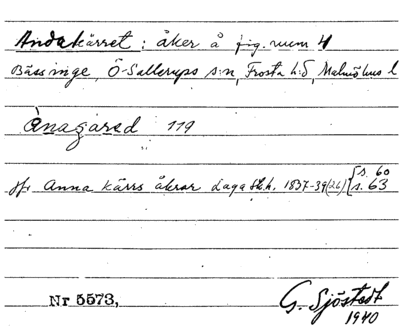 Andakärret : åker å fig. num 4
Bässinge, Ö-Sallerups s:n, Frosta h:d, Malmöhus l
Ånagared 119
jfr Anna kärrs åkrar Laga Skh. 1837-39 (26) [s. 60
s. 63
Nr 5573,
G. Sjöstedt
1940